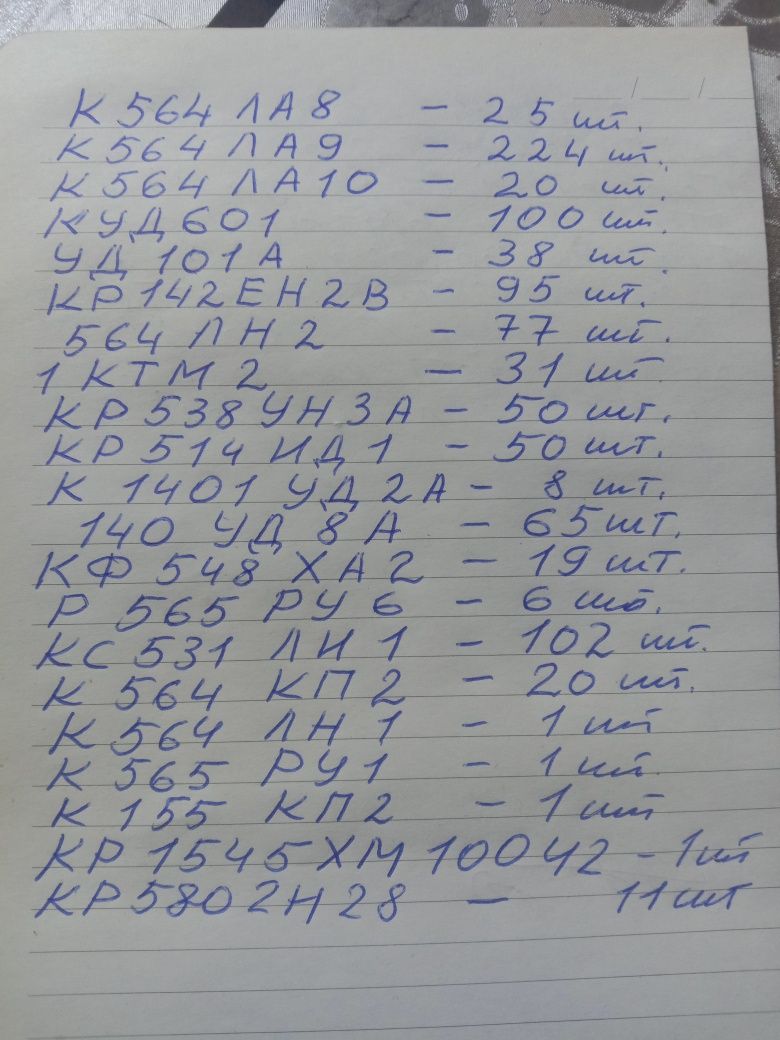 К 564 ЛА8 – 25 шт.
К 564 ЛА9 – 224 шт.
К 564 ЛА10 – 20 шт.
КУД601 – 100 шт.
УД 101А – 38 шт.
КР142ЕН2В – 95 шт.
564 ЛН2 – 77 шт.
1 КТМ2 – 31 шт.
КР 538 УН3А – 50 шт.
КР 514 ИД1 – 50 шт.
К 1401 УД2А – 8 шт.
140 УД 8А – 65 шт.
КФ 548 ХА2 – 19 шт.
Р 565 РУ6 – 6 шт.
КС 531 ЛН1 – 102 шт.
К 564 КП2 – 20 шт.
К 564 ЛН1 – 1 шт
К 565 РУ1 – 1 шт.
К 155 КП2 – 1 шт
КР 1545ХМ10042 – 1 шт
КР5802Н28 – 11 шт